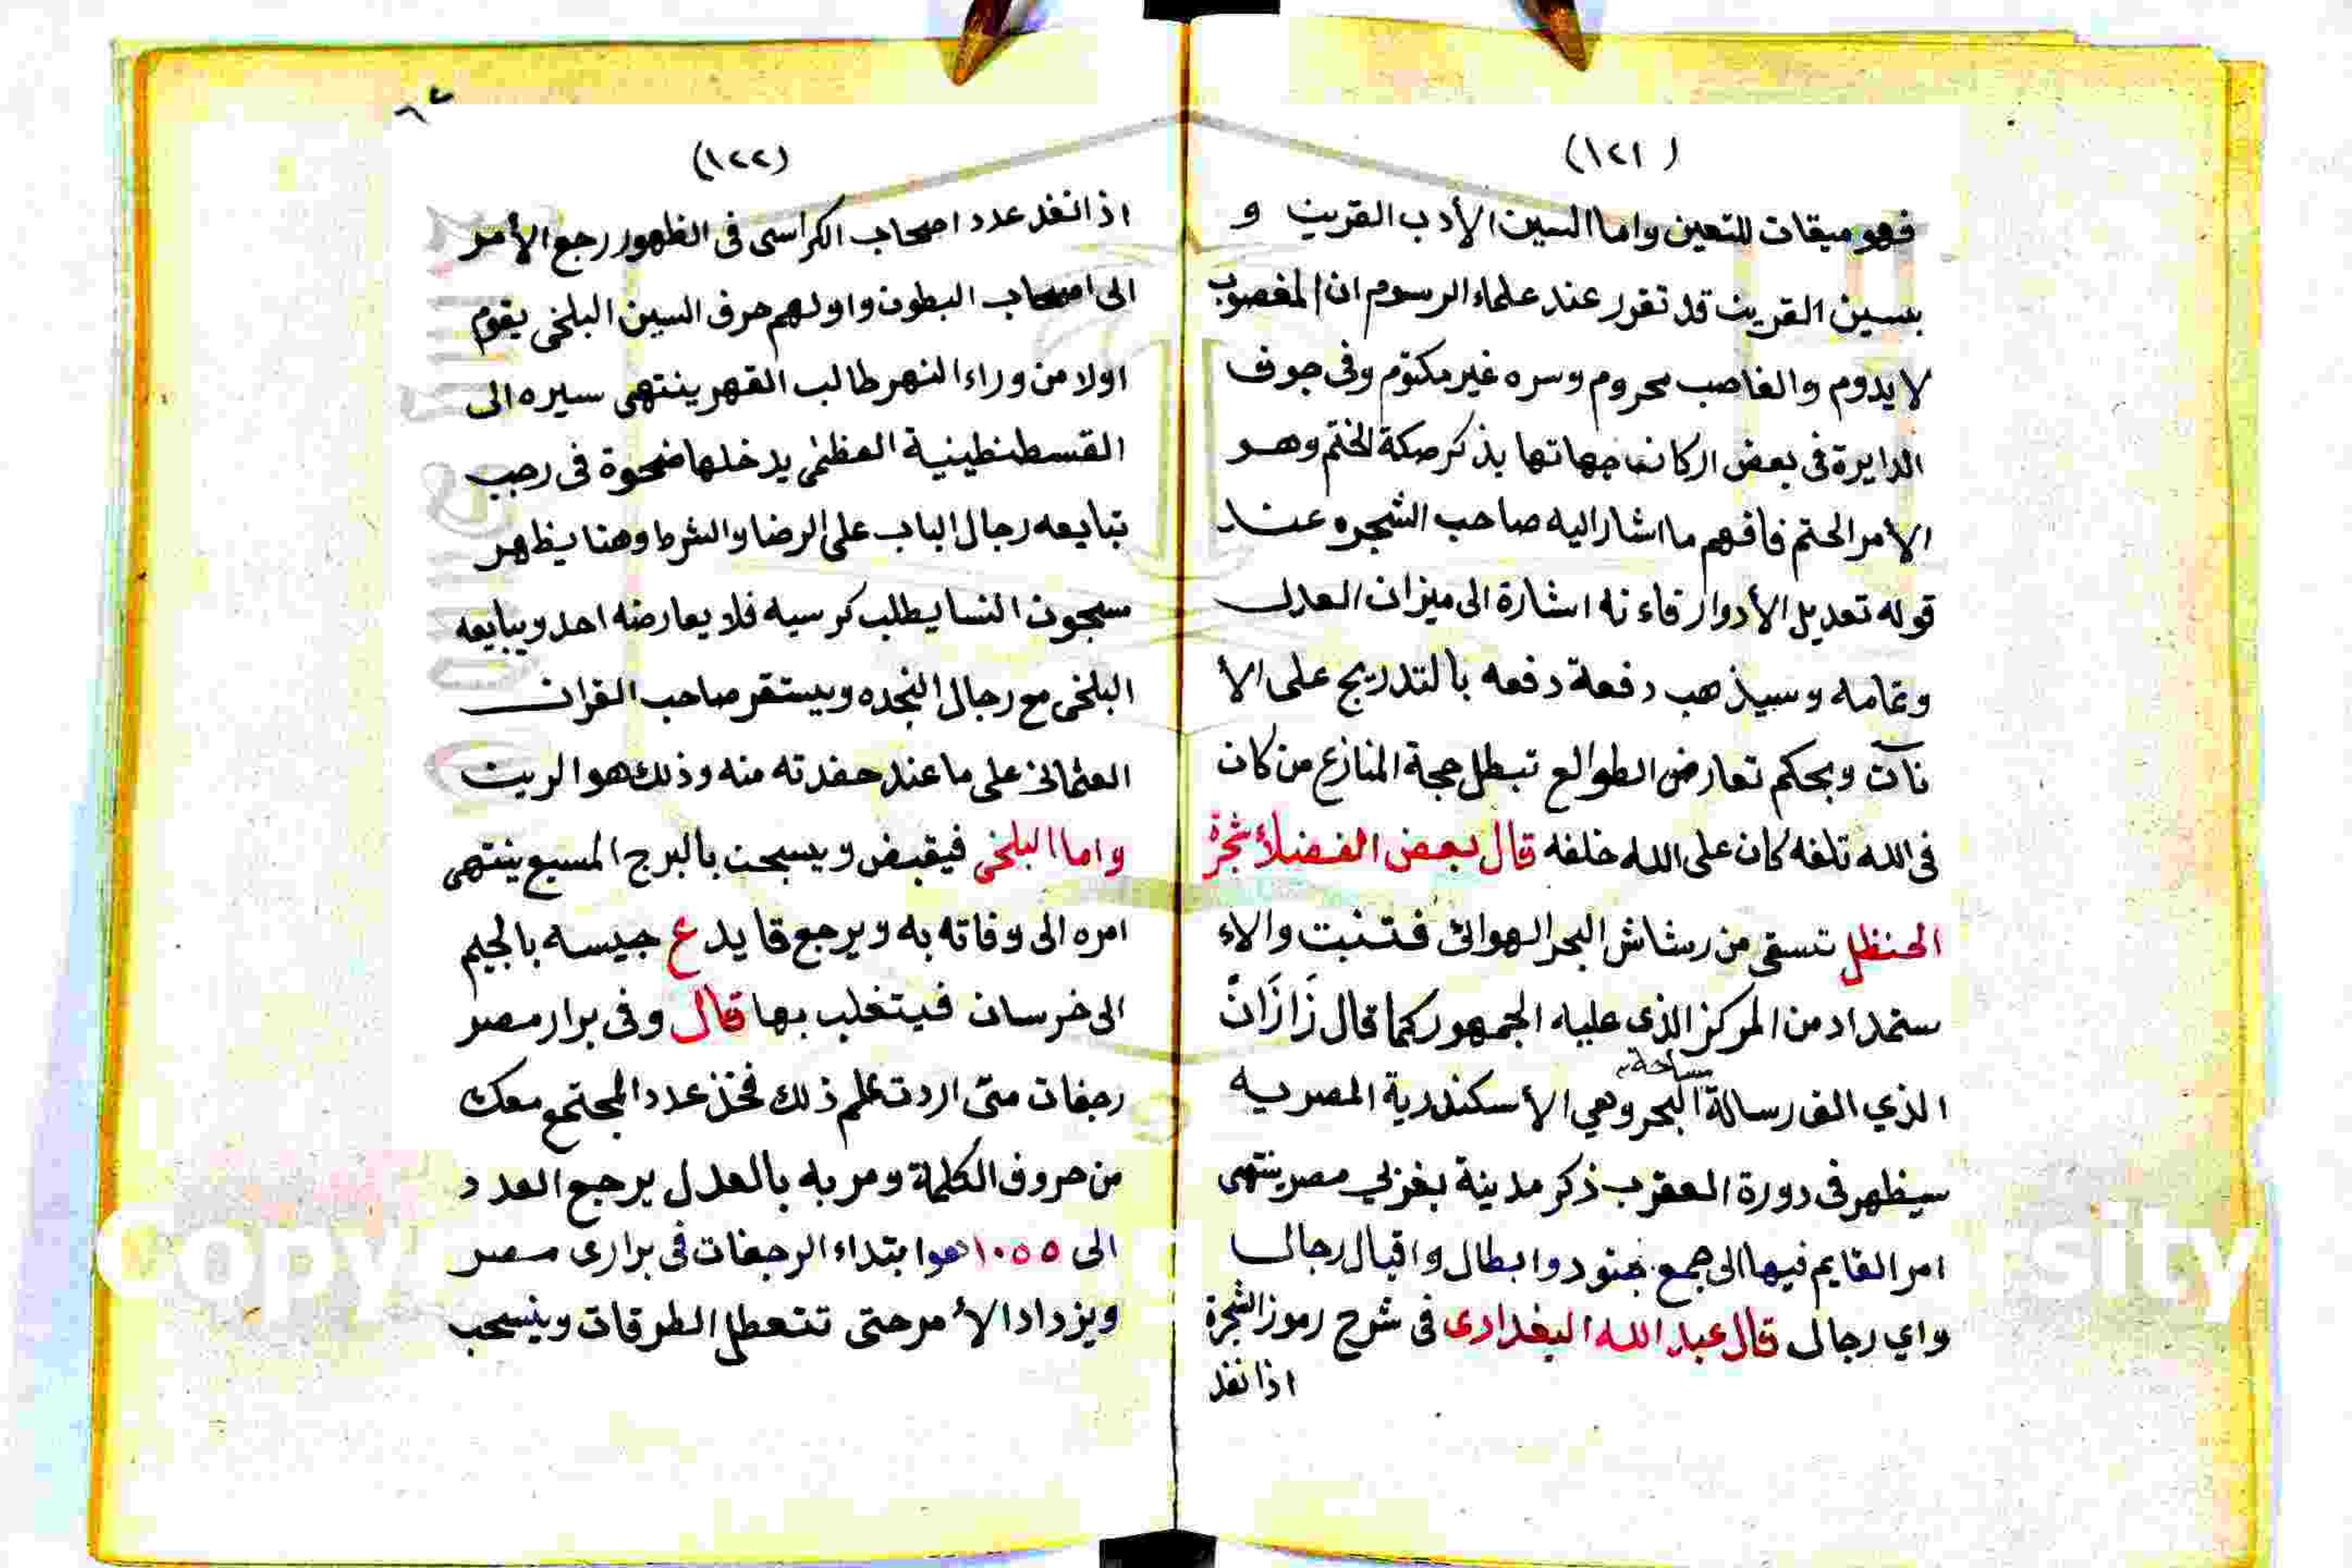 (١٢١)
فهو ميقات للتعين واما السين الأدب القرين و
بسين القرين قد تقرر عند علماء الرسوم ان المغصوب
لا يدوم والغاصب محروم وسره غير مكتوم وفى جوف
الدايرة فى بعض اركان جهاتها يذكر صكة الختم وهو
الامر الحتم فافهم ما اشار اليه صاحب الشجره عند
قوله تعديل الأدوار فاء نه اشارة الى ميزان العدل
وتمامه وسيذهب دفعة دفعه بالتدريج على الا
نآت وبحكم تعارض الطوالع تبطل حجة المنازع من كان
فى الله تلفه كان على الله خلفه قال بعض الفضلاء شجرة
الحنظل تسقى من رشاش البحر الهوائى فتنبت والاء
ستمداد من المركز الذى عليه الجمهور كما قال زَازَانْ
ساحة
الذي الف رسالة البحر وهي الأسكندرية المصريه
سيظهر فى دورة العقرب ذكر مدينة بغربي مصر ينتهى
امر القايم فيها الى جمع جنود وابطال واقبال رجال
واي رجال قال عبد الله البغدادى فى شرح رموز الشجرة
اذا نفذ
(١٢٢)
اذا نفذ عدد اصحاب الكراسى فى الظهور رجع الأمر
الى اصحاب البطون واولهم حرف السين البلخى يقوم
اولا من وراء النهر طالب القهر ينتهى سيره الى
القسطنطينية العظمى يدخلها ضحوة فى رجب
تبايعه رجال الباب على الرضا والشرط وهنا يظهر
مسجون النسا يطلب كرسيه فلا يعارضه احد ويبايعه
البلخى مع رجال النجده ويستقر صاحب القران
العثمانى على ما عند حفدته منه وذلك هو الريث
واما البلخى فيقبض ويسجن بالبرج المسبع ينتهى
امره الى وفاته به ويرجع قايد ع جيسه بالجيم
الى خرسان فيتغلب بها قال وفى برار مصر
رجفات متى اردت علم ذلك فخذ عدد المجتمع معك
من حروف الكلمة ومر به بالعدل يرجع العدد
الى ١٠٥٥ هوا بتداء الرجفات فى برارى مصر
ويزداد الأمر حتى تتعطل الطرقات وينسحب